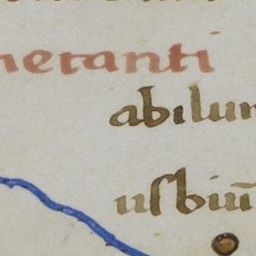 netanti
abilun
usbiū